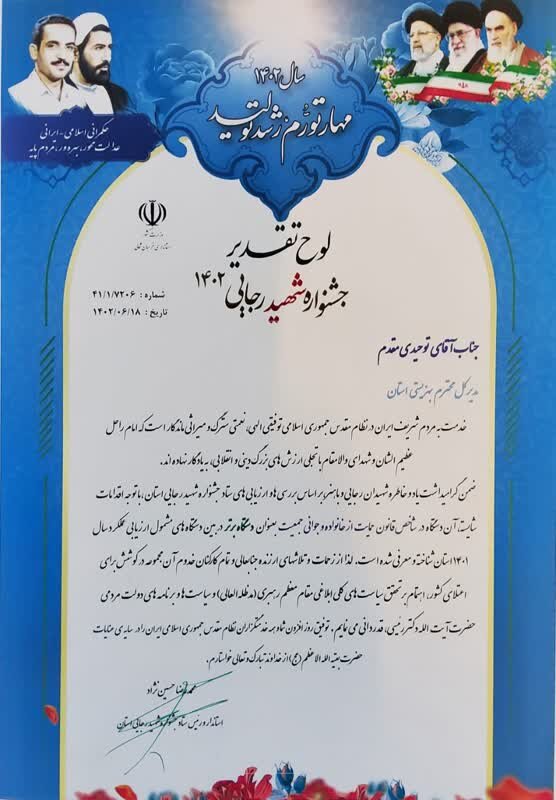 سال ۱۴۰۲
مهار تورم، رشد تولید
حکمرانی اسلامی - ایرانی
عدالت محور، بهره ور، مردم پایه
وزارت کشور
استانداری خراسان شمالی
لوح تقدیر
جشنواره شهید رجایی ۱۴۰۲
شماره : ۴۱/۱/۷۲۰۶
تاریخ : ۱۴۰۲/۰۶/۱۸
جناب آقای توحیدی مقدم
مدیر کل محترم بهزیستی استان
خدمت به مردم شریف ایران در نظام مقدس جمهوری اسلامی توفیقی الهی، نعمتی سترگ و میراثی ماندگار است که امام راحل
عظیم الشان و شهدای والامقام با تجلی ارزش های بزرگ دینی و انقلابی، به یادگار نهاده اند.
ضمن گرامیداشت یاد و خاطره شهیدان رجایی و باهنر، بر اساس بررسی ها و ارزیابی های ستاد جشنواره شهید رجایی استان، با توجه اقدامات
شایسته، آن دستگاه در شاخص قانون حمایت از خانواده و جوانی جمعیت بعنوان دستگاه برتر در بین دستگاه های مشمول ارزیابی عملکرد سال
۱۴۰۱ استان شناخته و معرفی شده است. لذا از زحمات و تلاشهای ارزنده جنابعالی و تمام کارکنان خدوم آن مجموعه در کوشش برای
اعتلای کشور، اهتمام بر تحقق سیاست های کلی ابلاغی مقام معظم رهبری (مدظله العالی) و سیاست ها و برنامه های دولت مردمی
حضرت آیت الله دکتر رئیسی، قدردانی می نمایم. توفیق روز افزون شما به خدمتگزاران نظام مقدس جمهوری اسلامی ایران را در سایه ی عنایات
حضرت بقیه الله الاعظم (عج) از خداوند تبارک و تعالی خواستارم.
محمدرضا حسین نژاد
استاندار و رئیس ستاد جشنواره شهید رجایی استان